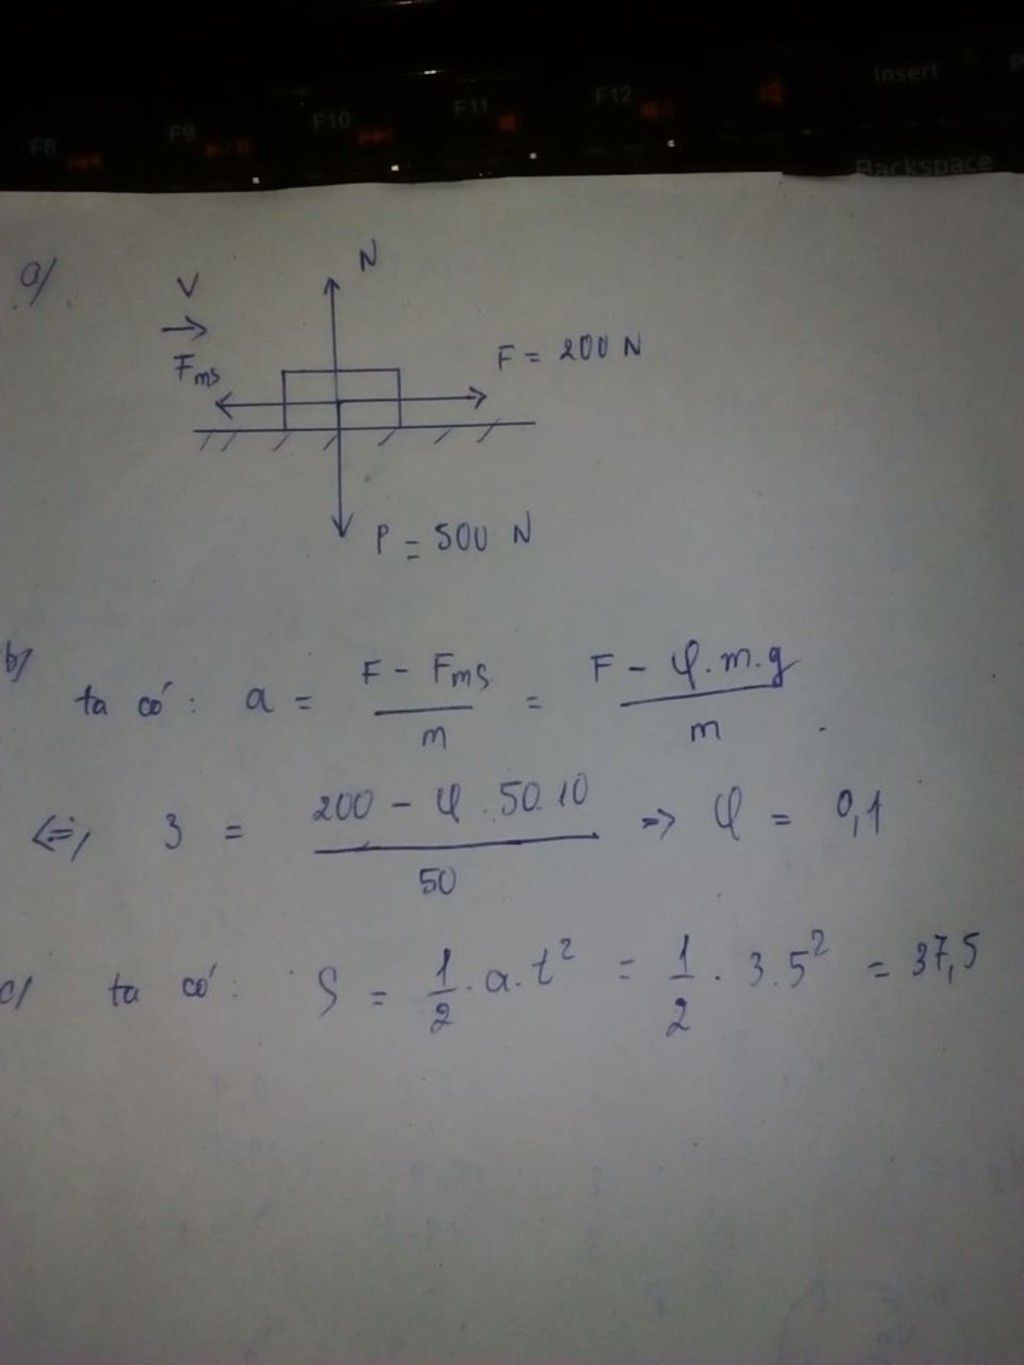 F8 F9 F10 F11 F12 Insert
Backspace
a/
N
V
Fms
F = 200 N
P = 500 N
b/
ta có: a = (F - Fms)/m = (F - φ.m.g)/m
<=> 3 = (200 - φ.50.10)/50 => φ = 0,1
c/ ta có: S = 1/2.a.t² = 1/2.3.5² = 37,5